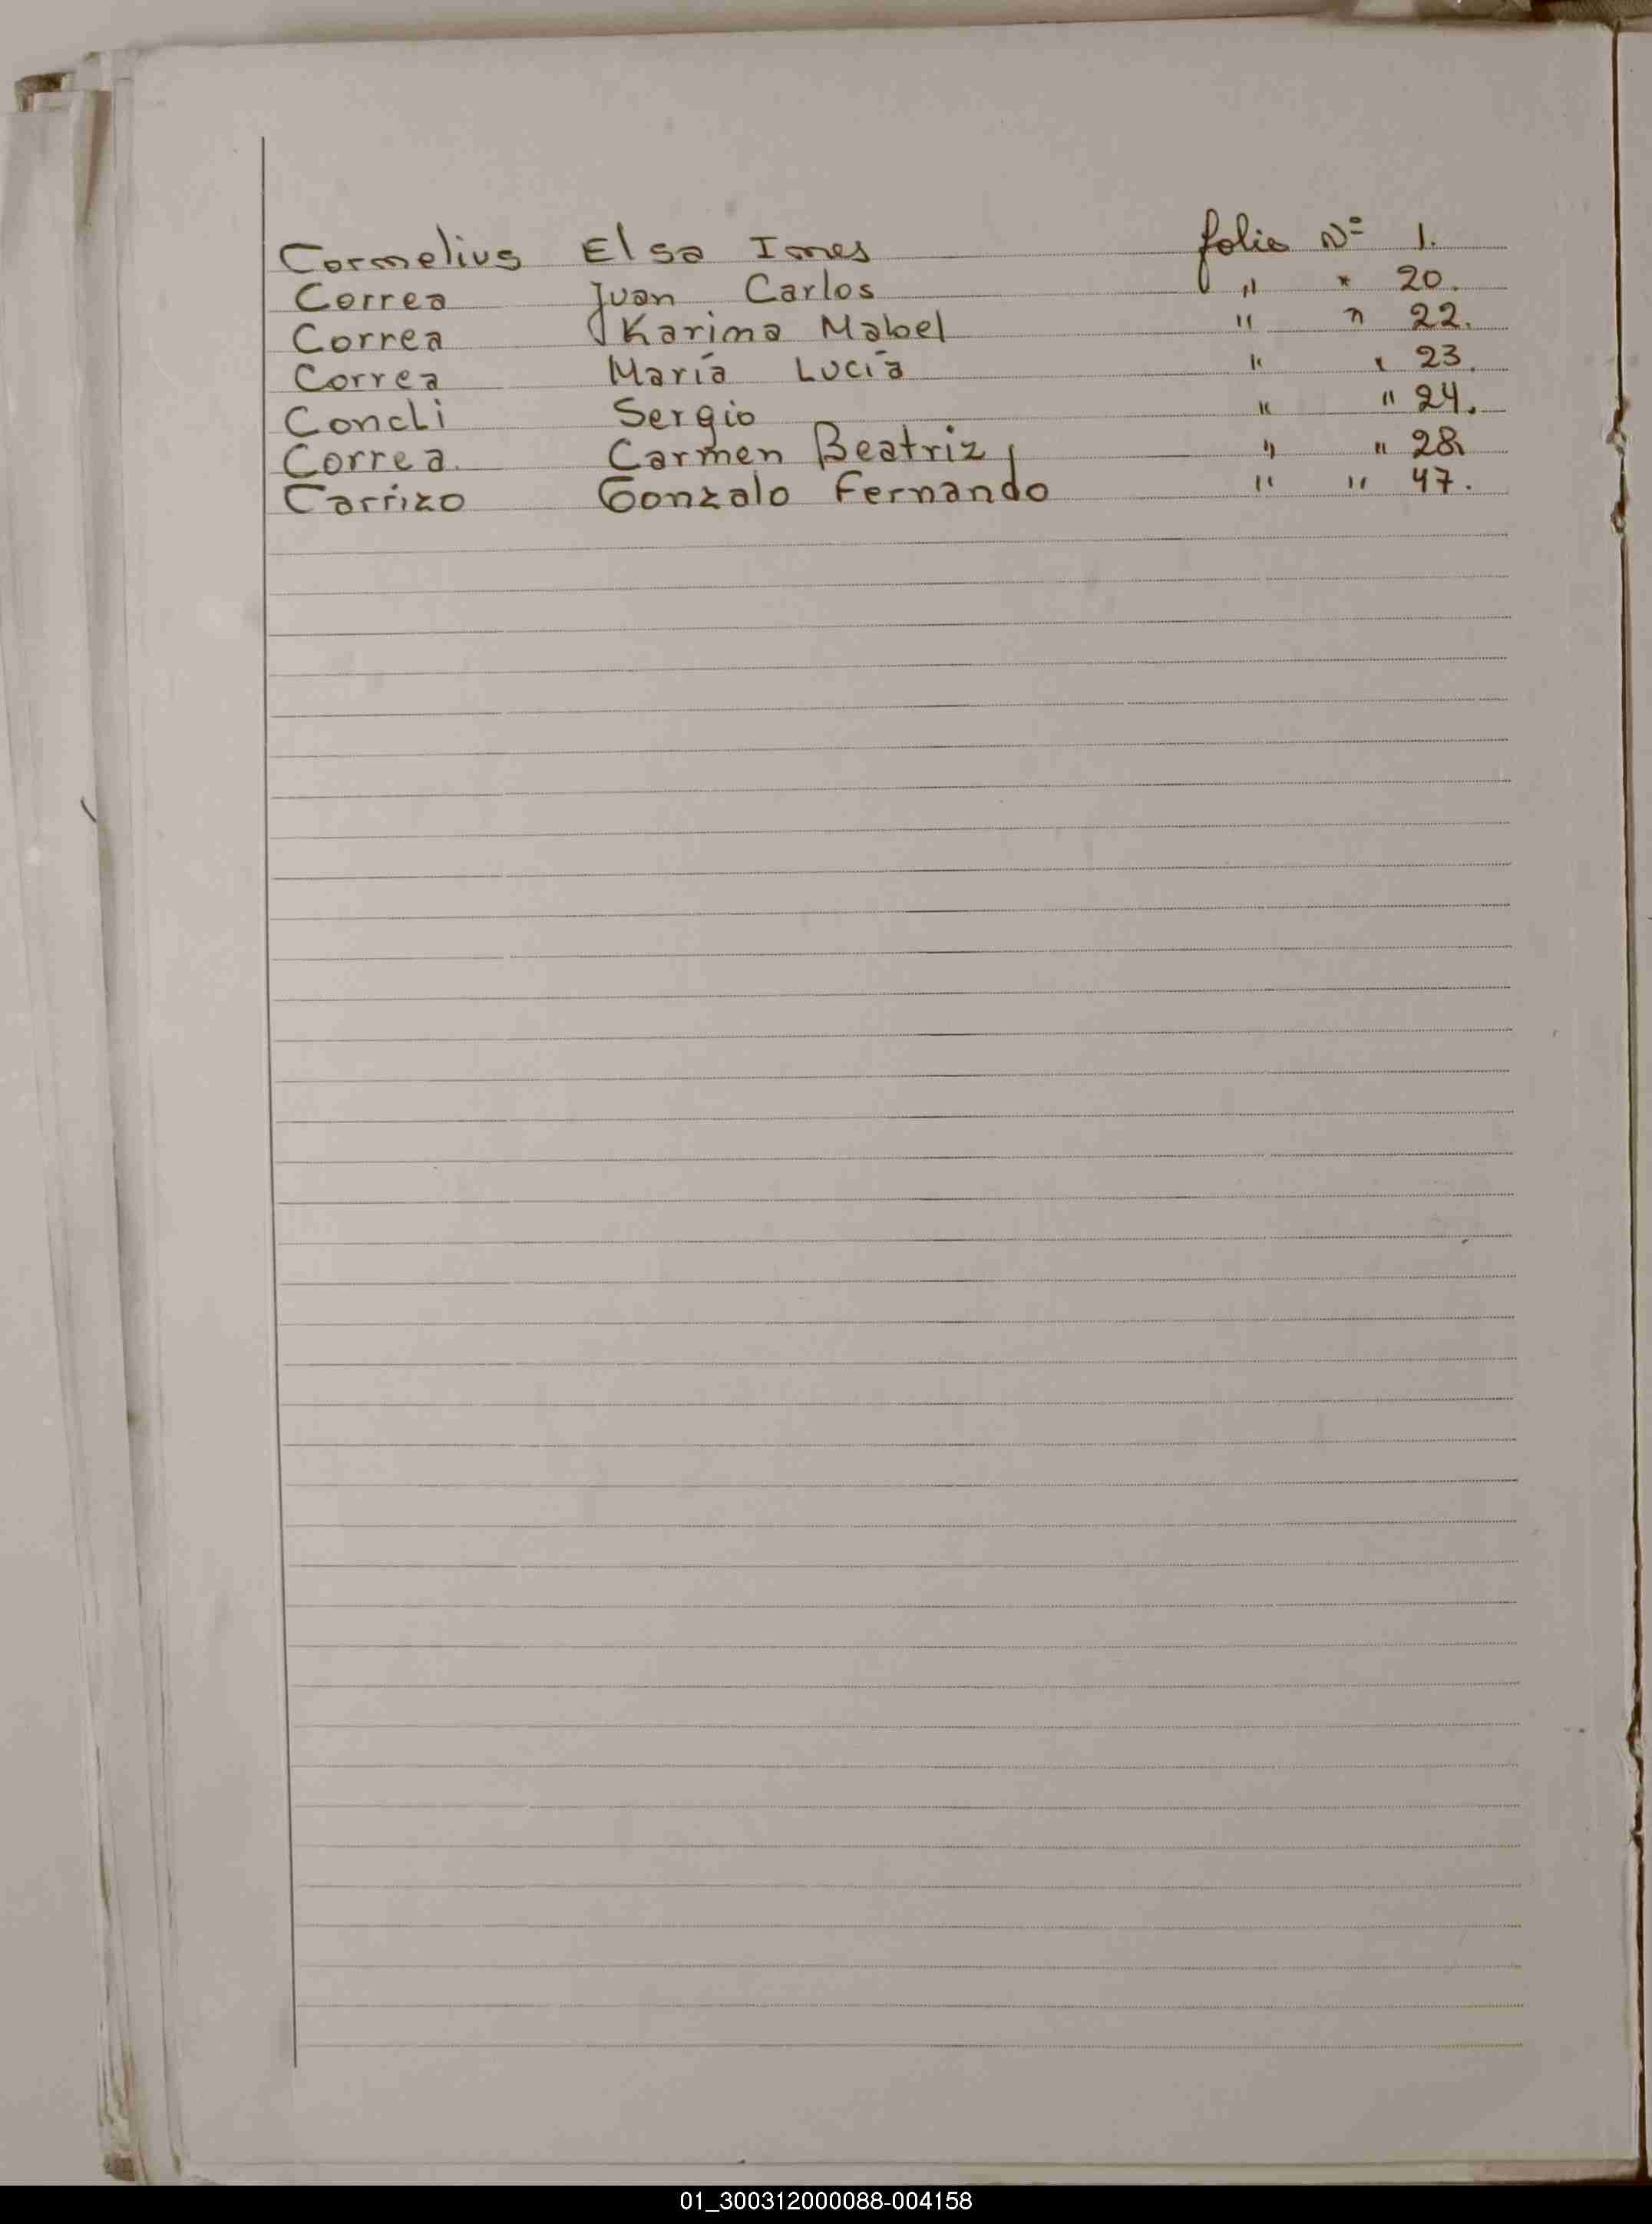 Cornelius Elsa Ines folio Nº 1.
Correa Juan Carlos " " 20.
Correa Karina Mabel " " 22.
Correa María Lucía " " 23.
Concli Sergio " " 24.
Correa. Carmen Beatriz " " 28.
Carrizo Gonzalo Fernando " " 47.
01_300312000088-004158